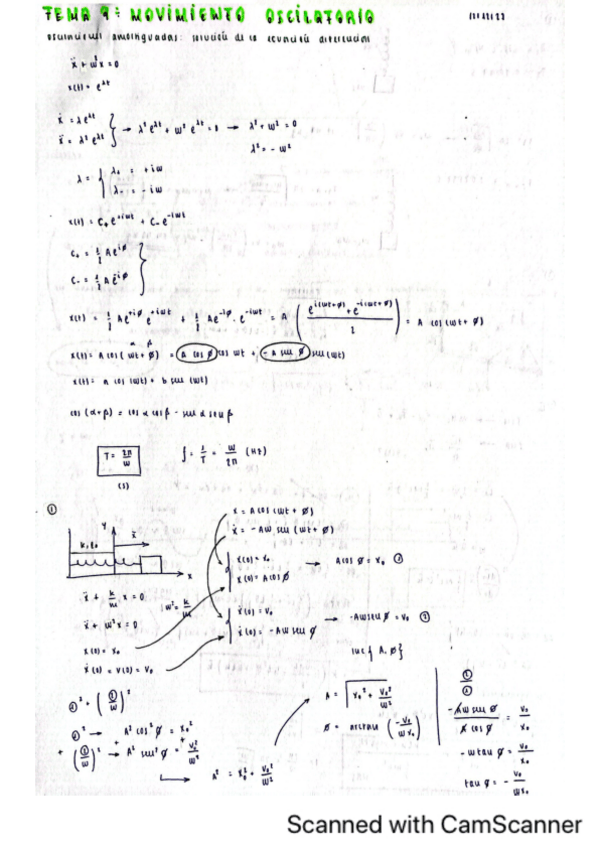 TEMA 9: MOVIMIENTO OSCILATORIO
oscilaciones amortiguadas: solución de la ecuación diferencial
ẍ + ω²x = 0
x(t) = e^λt
ẋ = λe^λt
ẍ = λ²e^λt } → λ²e^λt + ω²e^λt = 0 → λ² + ω² = 0
λ² = -ω²
λ = { λ₊ = +iω
λ₋ = -iω
x(t) = C₊e^+iωt + C₋e^-iωt
C₊ = 1/2 Ae^iφ
C₋ = 1/2 Ae^-iφ }
x(t) = 1/2 Ae^+iφ e^+iωt + 1/2 Ae^-iφ · e^-iωt = A ( (e^i(ωt+φ) + e^-i(ωt+φ)) / 2 ) = A cos (ωt + φ)
α β
x(t) = A cos (ωt + φ) = A cos φ cos ωt + -A sen φ sen (ωt)
x(t) = a cos (ωt) + b sen (ωt)
cos (α+β) = cos α cos β - sen α sen β
T = 2π/ω f = 1/T = ω/2π (Hz)
(s)
①
x = A cos (ωt + φ)
ẋ = -Aω sen (ωt + φ)
Y
k, l₀
x
X
x(0) = x₀
x(0) = A cos φ → A cos φ = x₀ ②
ẍ + k/m x = 0
ω² = k/m
ẍ + ω²x = 0
ẋ(0) = v₀
ẋ(0) = -Aω sen φ → -Aω sen φ = v₀ ①
x(0) = x₀
ẋ(0) = v(0) = v₀
{A, φ}
②² + (①/ω)²
②² → A² cos² φ = x₀²
+ (①/ω)² → A² sen² φ = v₀²/ω²
A² = x₀² + v₀²/ω²
A = √(x₀² + v₀²/ω²)
φ = arctan (-v₀/ωx₀)
①/②
-Aω sen φ / A cos φ = v₀/x₀
-ω tan φ = v₀/x₀
tan φ = - v₀/ωx₀
Scanned with CamScanner